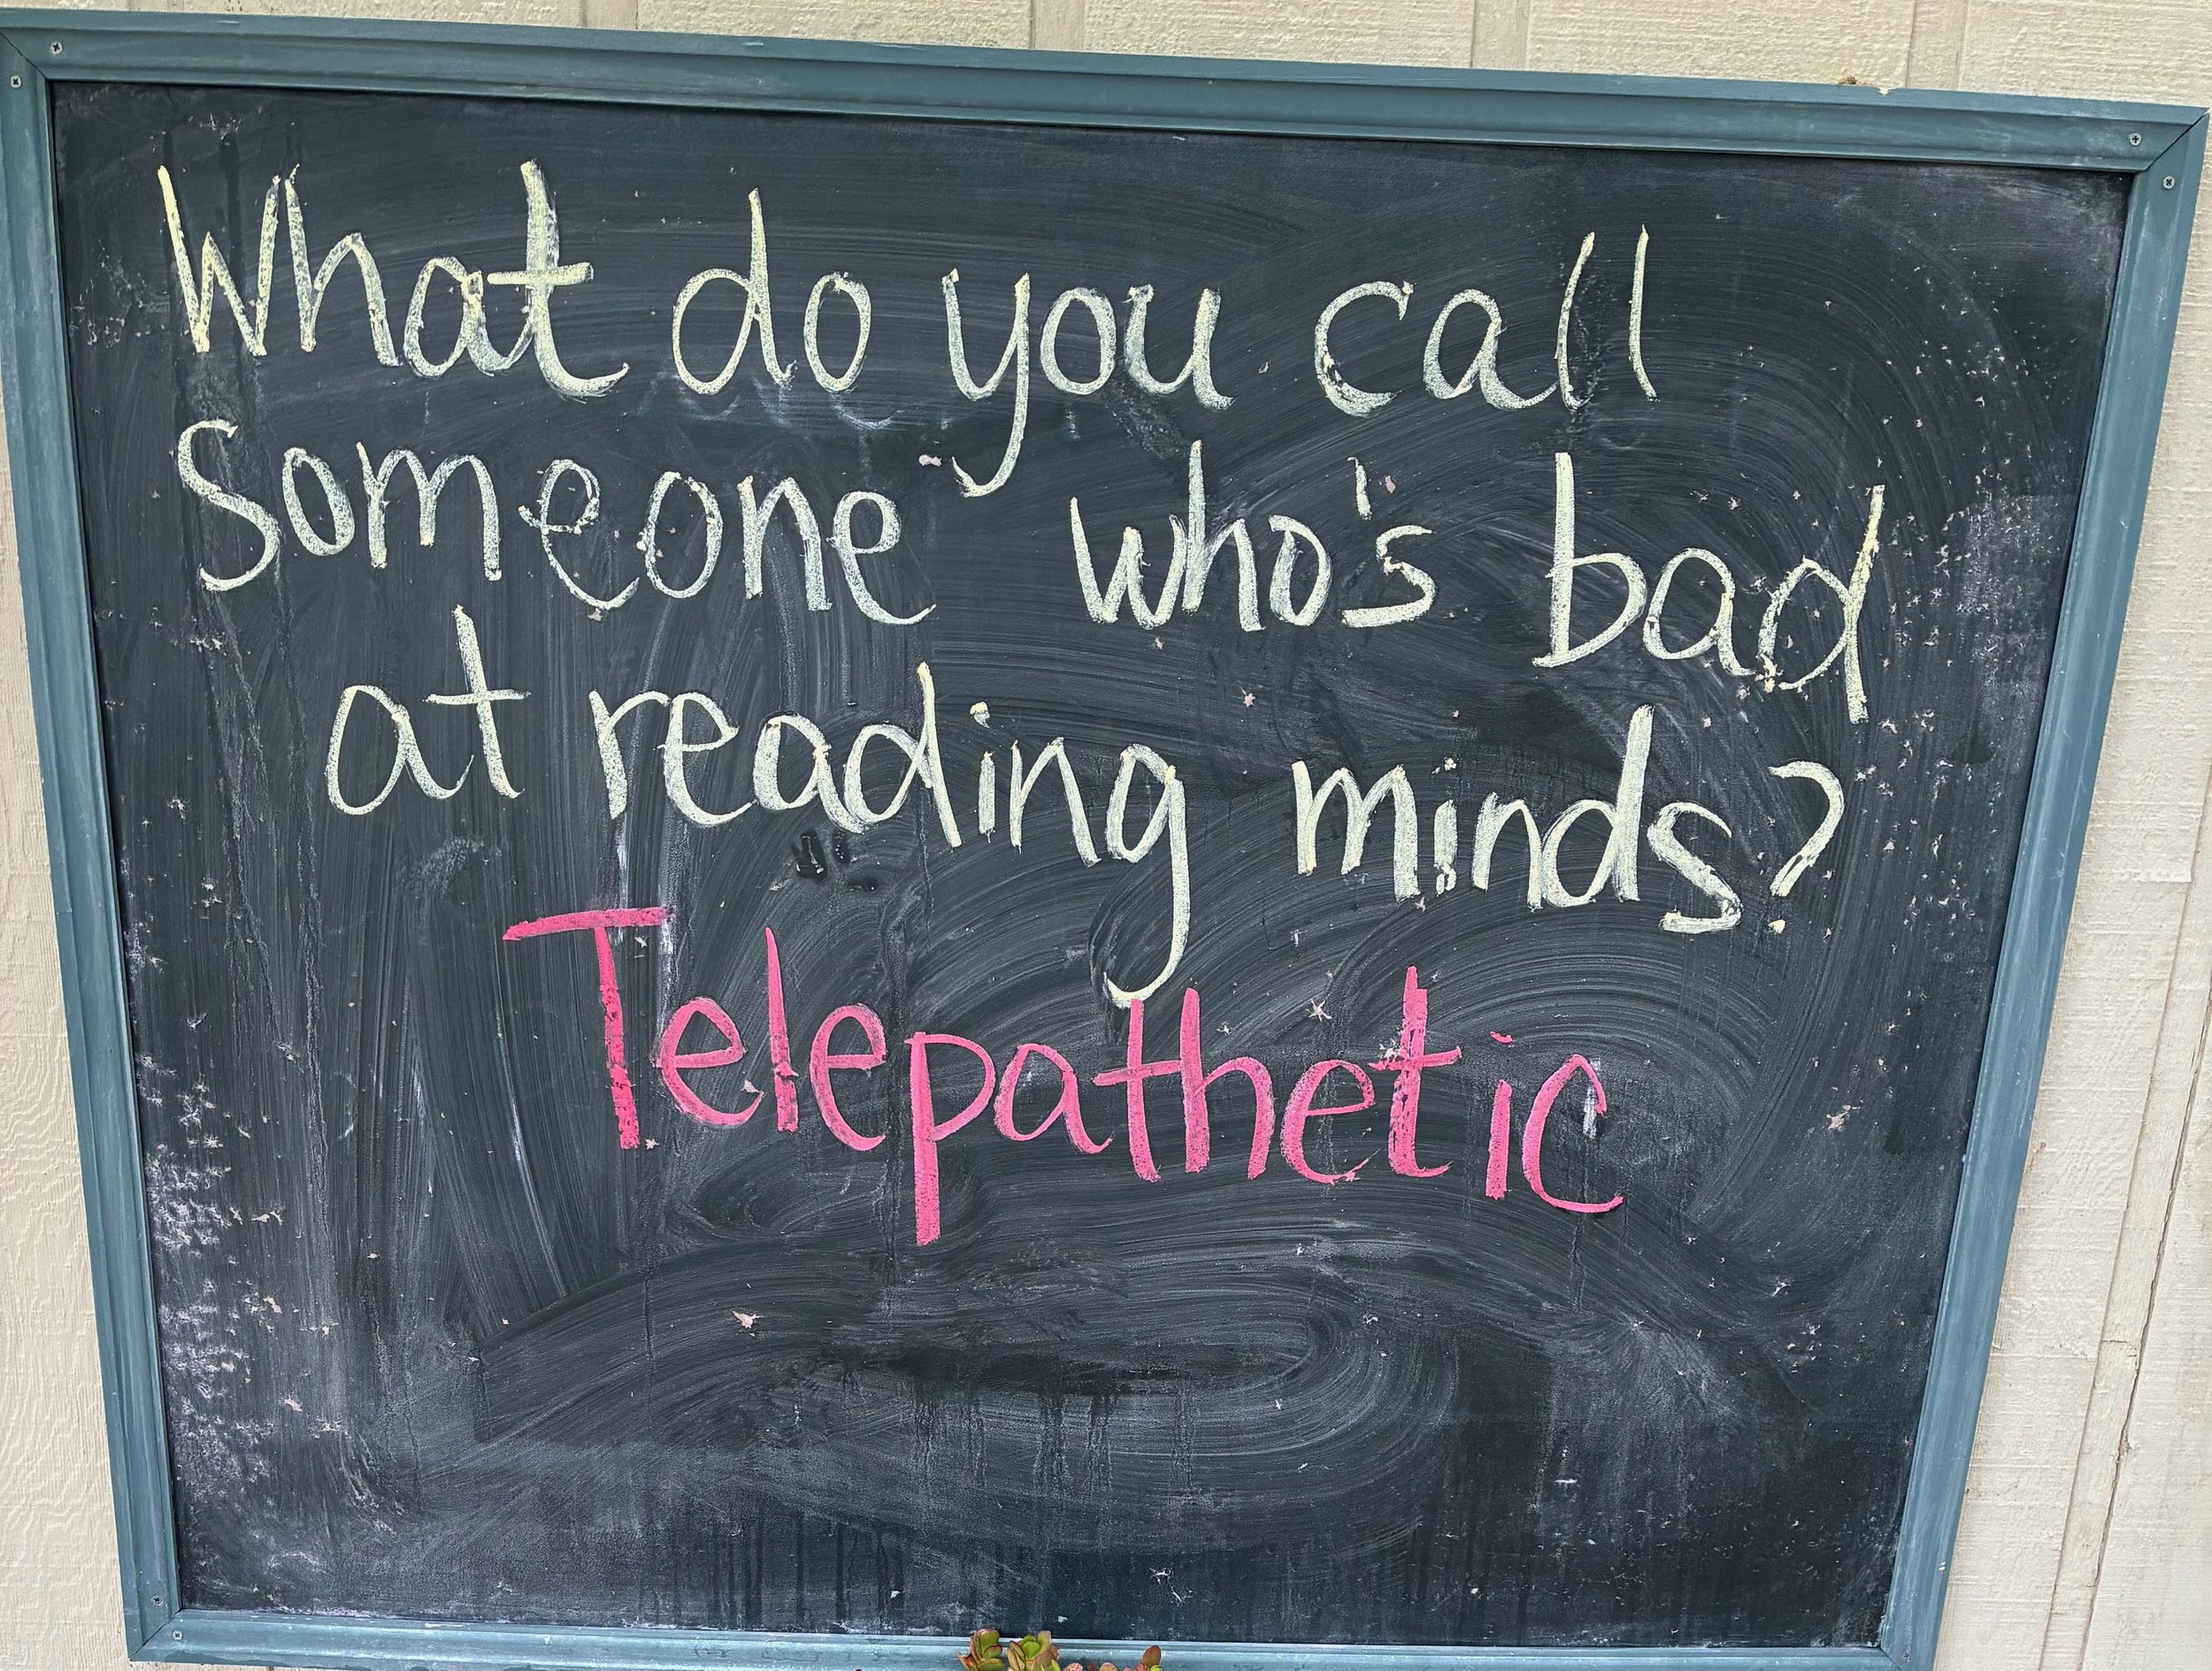 What do you call
someone who's bad
at reading minds?
Telepathetic